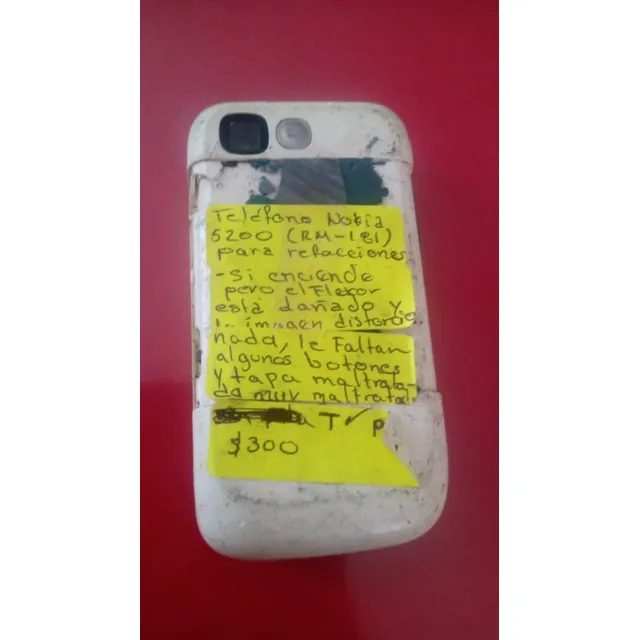 Teléfono Nokia
5200 (RM-181)
para refacciones
-Si enciende
pero el Flexor
está dañado y
la imagen distorcio
nada, le Faltan
algunos botones
y tapa maltrata-
da muy maltratad
T✓ p
$300